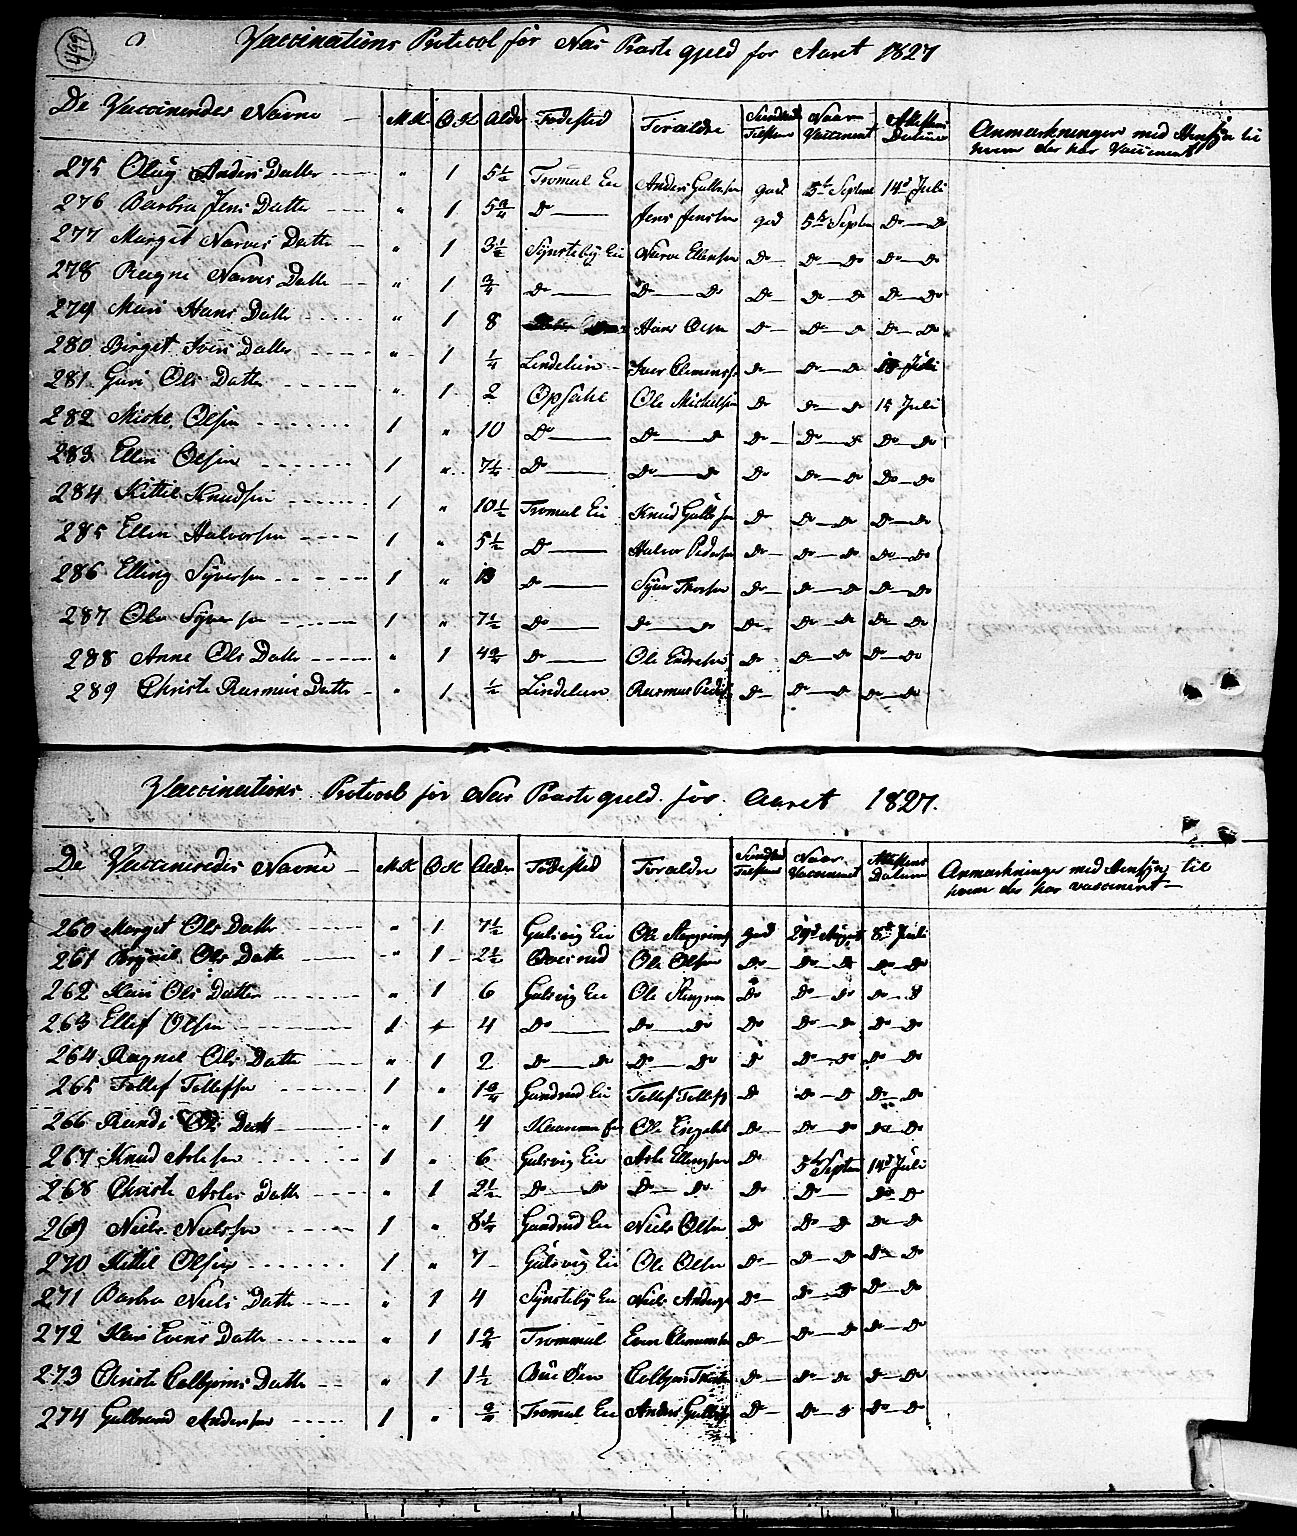 499
Vaccinations Protocol for Næs Præste gjeld for Aaret 1827
De Vaccineredes Navne M.K. Q.K. Alder Fødested Forældre Sundheds Tilstand Naar Vaccineret Attestens Datum Anmærkninger med Hensyn til hvem der har Vaccineret
275 Anders Datter " 1 5½ Tromal Eie Anders god 5t Septem 14d Juli
276 Barbra Jens Datter " 1 5¾ Do Jens Jensen god 5t Septem Do Do
277 Margit Narves Datter " 1 3½ Synsteby Eie Narve Ellensen Do Do Do Do Do
278 Ragne Narves Datter " 1 ¾ Do Do Do Do Do Do Do Do
279 Mari Hans Datter " 1 8 Hans Olsen Do Do Do Do Do
280 Birget Ivers Datter " 1 ¼ Lindelien Iver Clemensen Do Do Do Juli
281 Guri Ols Datter " 1 2 Opsahl Ole Michelsen Do Do Do 14 Juli
282 Michel Olsen 1 " 10 Do Do Do Do Do Do Do Do
283 Ellen Olsen 1 " 7½ Do Do Do Do Do Do Do Do
284 Kittil Knudsen 1 " 10½ Tromal Eie Knud Gulbrsen Do Do Do Do Do
285 Ellen Halvorsen 1 " 5½ Do Halvor Pedersen Do Do Do Do Do
286 Elling Syversen 1 " 13 Do Syver Thorsen Do Do Do Do Do
287 Ole Syversen 1 " 7½ Do Do Do Do Do Do Do Do
288 Anne Ols Datter " 1 4¾ Do Ole Endresen Do Do Do Do Do
289 Christi Rasmus Datter " 1 ½ Lindelien Rasmus Peders Do Do Do Do Do
Vaccinations Protocol for Næs Præste gjeld for Aaret 1827.
De Vaccineredes Navne M.K. Q.K. Alder Fødested Forældre Sundheds Tilstand Naar Vaccineret Attestens Datum Anmærkninger med Hensyn til hvem der har vaccineret
260 Margit Ols Datter " 1 7½ Gulsvig Eie Ole god 29d August 8d Juli
261 Ols Datter " 1 2½ Ole Olsen Do Do Do Do Do
262 Kari Ols Datter " 1 6 Gulsvig Eie Ole Do Do Do Do
263 Ellef Olsen 1 " 4 Do Do Do Do Do Do Do Do
264 Ragnil Ols Datter " 1 2 Do Do Do Do Do Do Do Do Do
265 Tollef Tollefsen 1 " 1¾ Gundrud Eie Tollef Tollefs Do Do Do Do Do
266 Randi Ols Datt " 1 4 Ole Engebret Do Do Do Do Do
267 Knud Aslesen 1 " 6 Gulsvig Eie Asle Ellingsen Do 5te Septem 14d Juli
268 Christi Asles Datter " 1 2½ Do Do Do Do Do Do Do Do
269 Niels Nielssen 1 " 8¼ Gundrud Eie Niels Olsen Do Do Do Do Do
270 Kittil Olsen 1 " 7 Gulsvig Eie Ole Olsen Do Do Do Do Do
271 Barbra Niels Datter " 1 4 Synsteby Eie Niels Anders Do Do Do Do Do
272 Kari Evens Datter " 1 1¾ Trommal Even Clemensen Do Do Do Do Do
273 Christi Colbjørns Datter " 1 1½ Bue Øen Colbjørn Do Do Do Do Do
274 Gulbrand Andersen 1 " ¾ Tromal Eie Anders Gulbrs Do Do Do Do Do